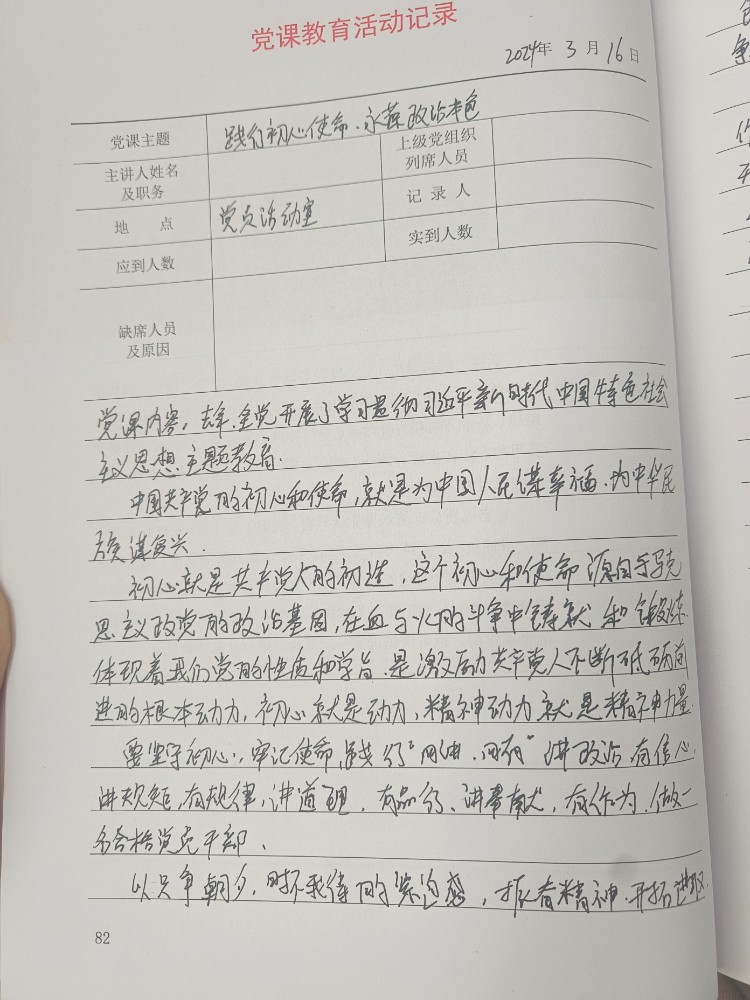 党课教育活动记录
2024年 3月16日
党课主题 践行初心使命、永葆政治本色 上级党组织
列席人员
主讲人姓名
及职务
地 点 党员活动室 记 录 人
应到人数 实到人数
缺席人员
及原因
党课内容：去年，全党开展了学习贯彻习近平新时代中国特色社会
主义思想主题教育.
中国共产党的初心和使命，就是为中国人民谋幸福、为中华民
族谋复兴.
初心就是共产党人的初造，这个初心和使命源自于马克
思主义政党的政治基因，在血与火的斗争中铸就和锻炼.
体现着我们党的性质和学旨，是激励共产党人不断砥砺前
进的根本动力，初心就是动力，精神动力就是精神力量.
要坚守初心，牢记使命，践行"四讲、四有"讲政治、有信心、
讲规矩，有规律，讲道理、有品行、讲奉献，有作为，做一
名合格党员干部、
以只争朝夕，时不我待的紧迫感，振奋精神、开拓进取.
82